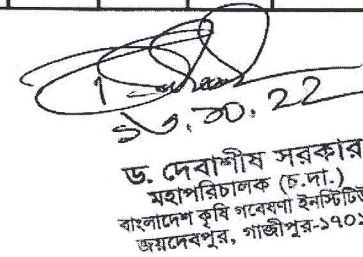 ১৬.১০.22
ড. দেবাশীষ সরকার
মহাপরিচালক (চ.দা.)
বাংলাদেশ কৃষি গবেষণা ইনস্টিটিউ
জয়দেবপুর, গাজীপুর-১৭০১